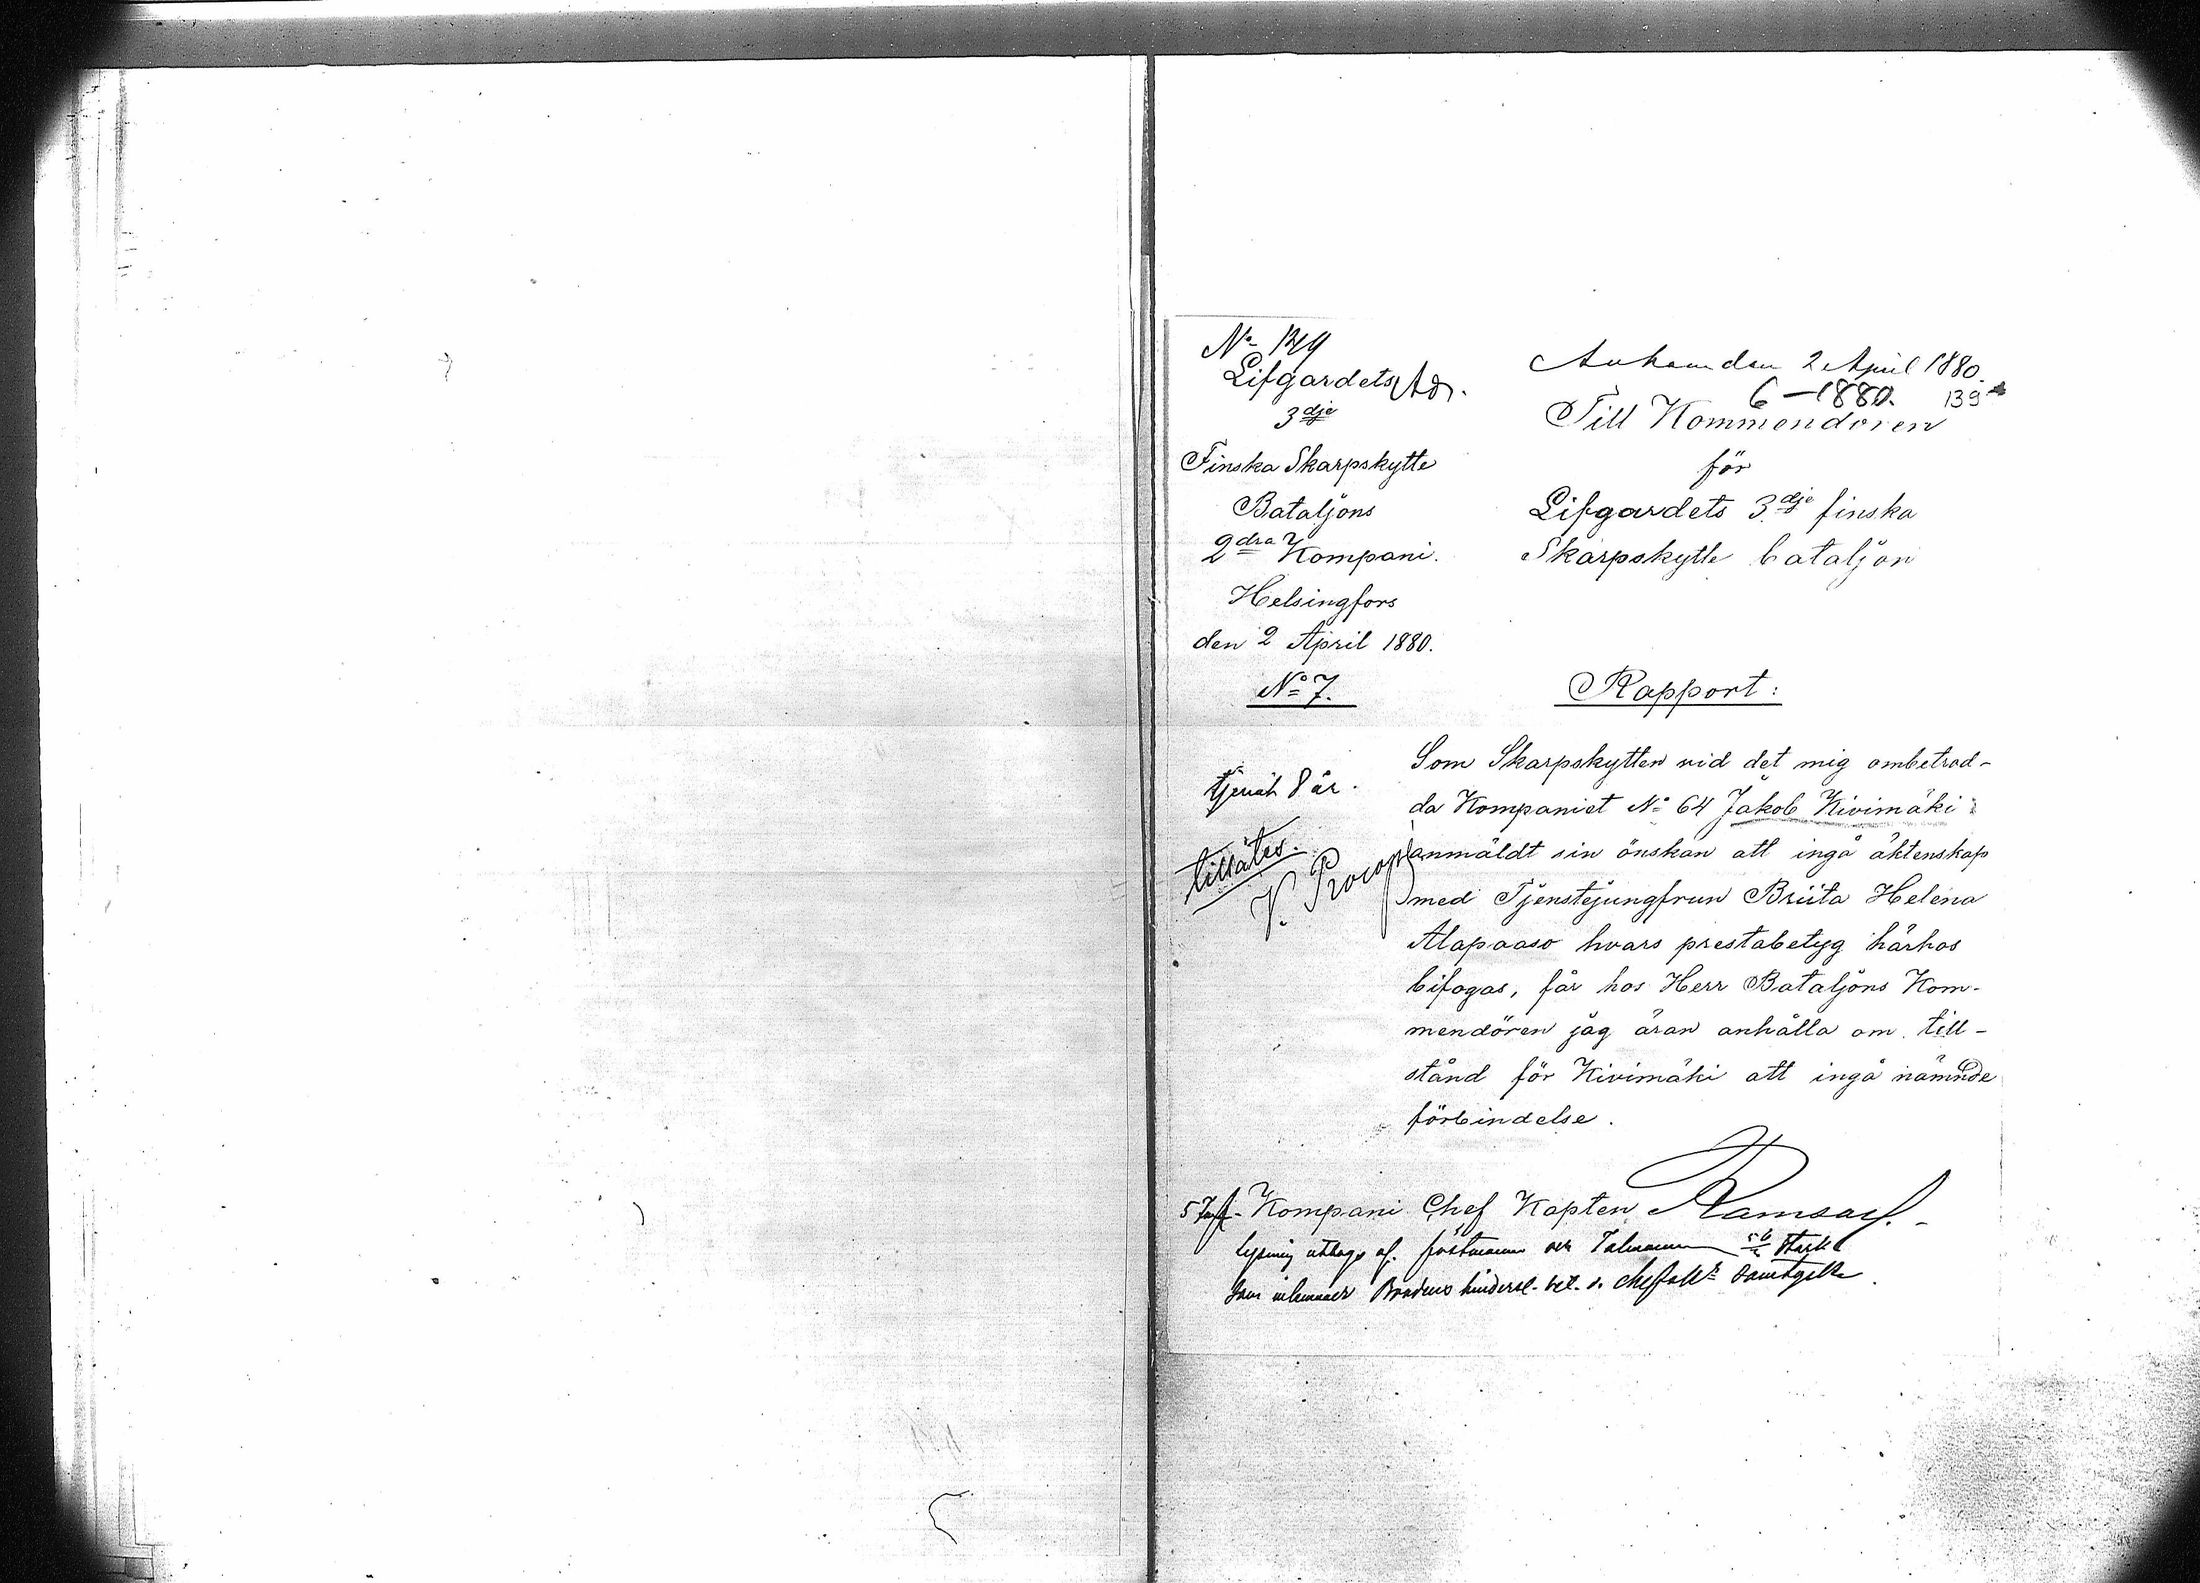 No 149
Lifgardets
3dje
Finska Skarpskytte
Bataljons
2dra Kompani.
Helsingfors
den 2 April 1880.
No 7.
Ankom den 2 April 1880.
6-1880. 139
Till Kommendören
för
Lifgardets 3dje finska
Skarpskytte bataljon
Rapport:
tjenat 8 år.
tillåtes.
V. Procopé
Som Skarpskytten vid det mig ombetrod-
da Kompaniet No 64 Jakob Kivimäki
anmäldt sin önskan att ingå äktenskap
med Tjenstejungfrun Briita Helena
Alapaaso hvars prestabetyg härhos
bifogas, får hos Herr Bataljons Kom-
mendören jag äran anhålla om till-
stånd för Kivimäki att ingå nämnde
förbindelse.
Kompani Chef Kapten Ramsay.
lysning uttages af